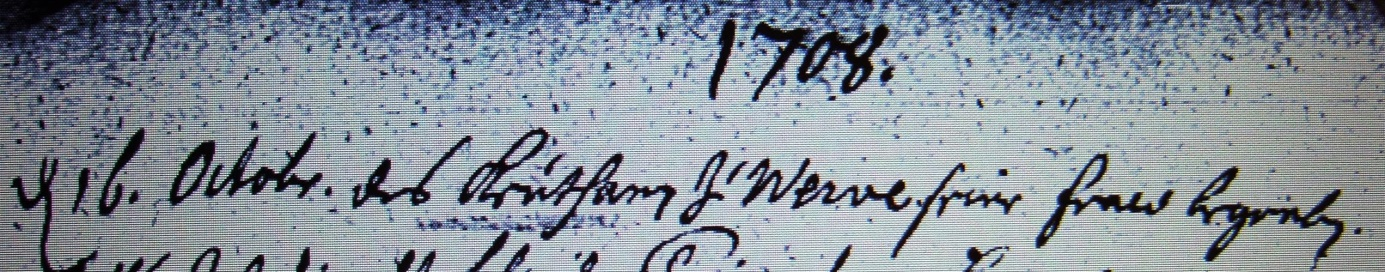 1708.
d 16. Octobr. des Krüthans z' Werve seine fraw begrabn.